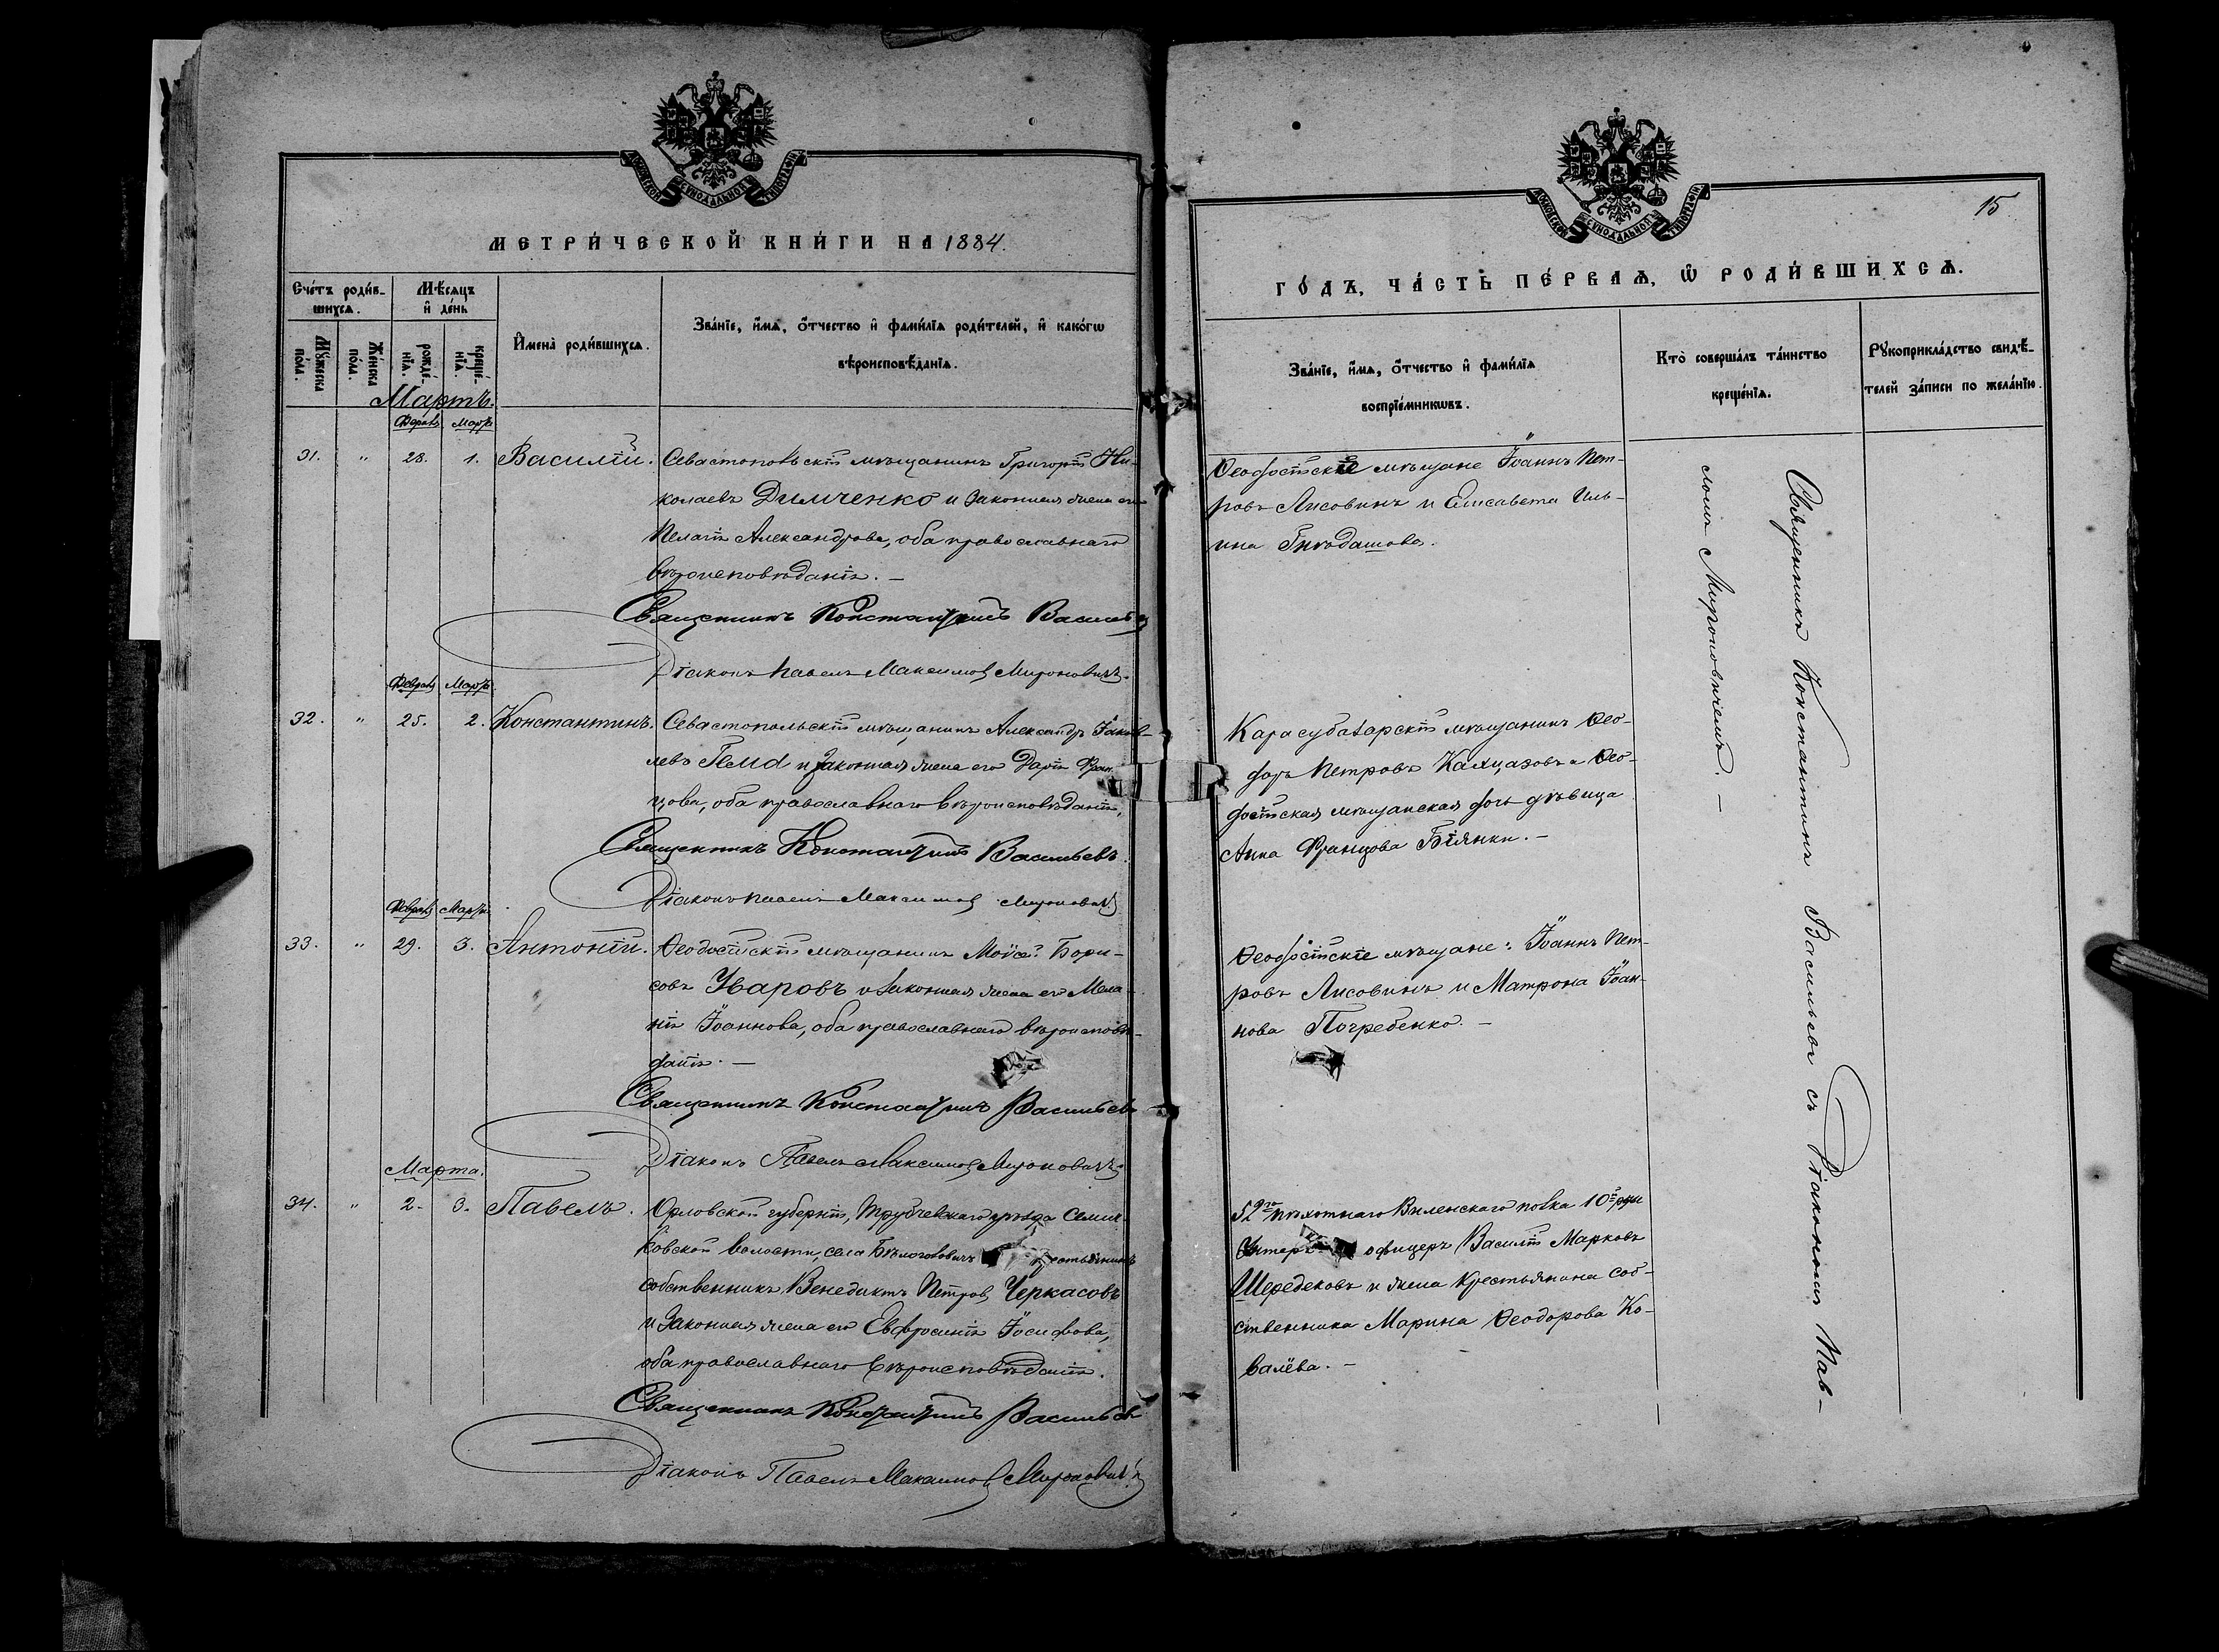 МОСКОВСКОЙ СѴНОДАЛЬНОЙ ТИПОГРАФІИ
МЕТРИ́ЧЕСКОЙ КНИ́ГИ НА 1884.
Счéтъ роди́в-
шихсѧ.
Мѣ́сѧцъ
и҆ де́нь
Мꙋ́жеска
по́ла.
Же́нска
по́ла.
рожде́-
нїѧ.
креще́-
нїѧ.
И҆мена̀ роди́вшихсѧ.
Зва́нїе, и҆́мѧ, ѻ҆́тчество и҆ фами́лїѧ роди́телей, и҆ како́гѡ
вѣроисповѣ́данїѧ.
Мартъ.
Февраля Марта
31. " 28. 1. Василій. Севастопольскій мѣщанинъ Григорій Ни-
колаевъ Димченко и законная жена его
Пелагія Александрова, оба православнаго
вѣроисповѣданія. —
Священникъ Константинъ Васильевъ
Діаконъ Павелъ Максимовъ Мироновичъ.
Февраля Марта
32. " 25. 2. Константинъ. Севастопольскій мѣщанинъ Александръ Іаков-
левъ и законная жена его Дарія Фран-
цова, оба православнаго вѣроисповѣданія,
Священникъ Константинъ Васильевъ.
Діаконъ Павелъ Максимовъ Мироновичъ
Февраля Марта
33. " 29. 3. Антоній. Ѳеодосійскій мѣщанинъ Моѵсей Бори-
совъ Уваровъ и законная жена его Мела-
нія Іоаннова, оба православнаго вѣроисповѣ-
данія. —
Священникъ Константинъ Васильевъ
Діаконъ Павелъ Максимовъ Мироновичъ
Марта.
34. " 2. 3. Павелъ. Орловской губерніи, Трубчевскаго уѣзда Семич-
ковской волости, села крестьянинъ
собственникъ Венедиктъ Петровъ Черкасовъ
и законная жена его Евфросинія Іосифова,
оба православнаго вѣроисповѣданія.
Священникъ Константинъ Васильевъ
Діаконъ Павелъ Максимовъ Мироновичъ
МОСКОВСКОЙ СѴНОДАЛЬНОЙ ТИПОГРАФІИ
15
ГО́ДЪ, ЧА́СТЬ ПЕ́РВАѦ, Ѡ҆ РОДИ́ВШИХСѦ.
Зва́нїе, и҆́мѧ, ѻ҆́тчество и҆ фами́лїѧ
воспрїе́мникѡвъ.
Кто̀ соверша́лъ та́инство
креще́нїѧ.
Рꙋкоприкла́дство свидѣ́-
телей за́писи по жела́нїю.
Ѳеодосійскіе мѣщане Іоаннъ Пет-
ровъ Лисовинъ и Елисавета Иль-
ина Гнѣдашова.
Карасубазарскій мѣщанинъ Ѳео-
доръ Петровъ и Ѳео-
досійская мѣщанская дочь дѣвица
Анна Францова Біянки. —
Ѳеодосійскіе мѣщане: Іоаннъ Пет-
ровъ Лисовинъ и Матрона Іоан-
нова Погребенко. —
52го пѣхотнаго Виленскаго полка 10й роты
Унтеръ офицеръ Василій Марковъ
Шередековъ и жена крестьянина соб-
ственника Марина Ѳеодорова Ко-
валёва. —
Священникъ Константинъ Васильевъ съ Діакономъ Пав-
ломъ Мироновичемъ. —